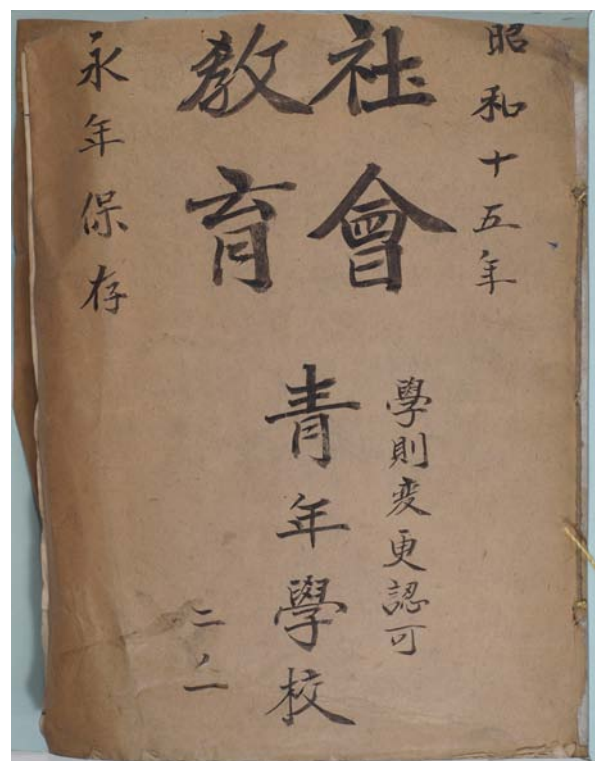 昭和十五年
社會
教育
學則変更認可
青年學校
二ノ一
永年保存